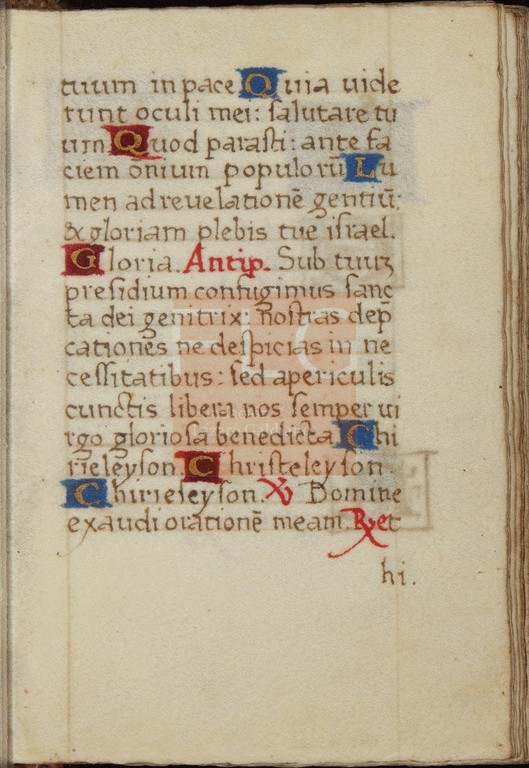 tuum in pace Quia uide
runt oculi mei: salutare tu
um Quod parasti: ante fa
ciem onium populorū Lu
men ad reuelationē gentiū:
& gloriam plebis tue israel.
Gloria. Antip. Sub tuuʒ
presidium confugimus sanc
ta dei genitrix: nostras dep̄
cationes ne despicias in ne
cessitatibus: sed apericulis
cunctis libera nos semper ui
rgo gloriosa benedicta. Chi
rieleyson. Christeleyson
Chirieleyson. ℣ Domine
exaudi orationē meam. ℟ et
hi.